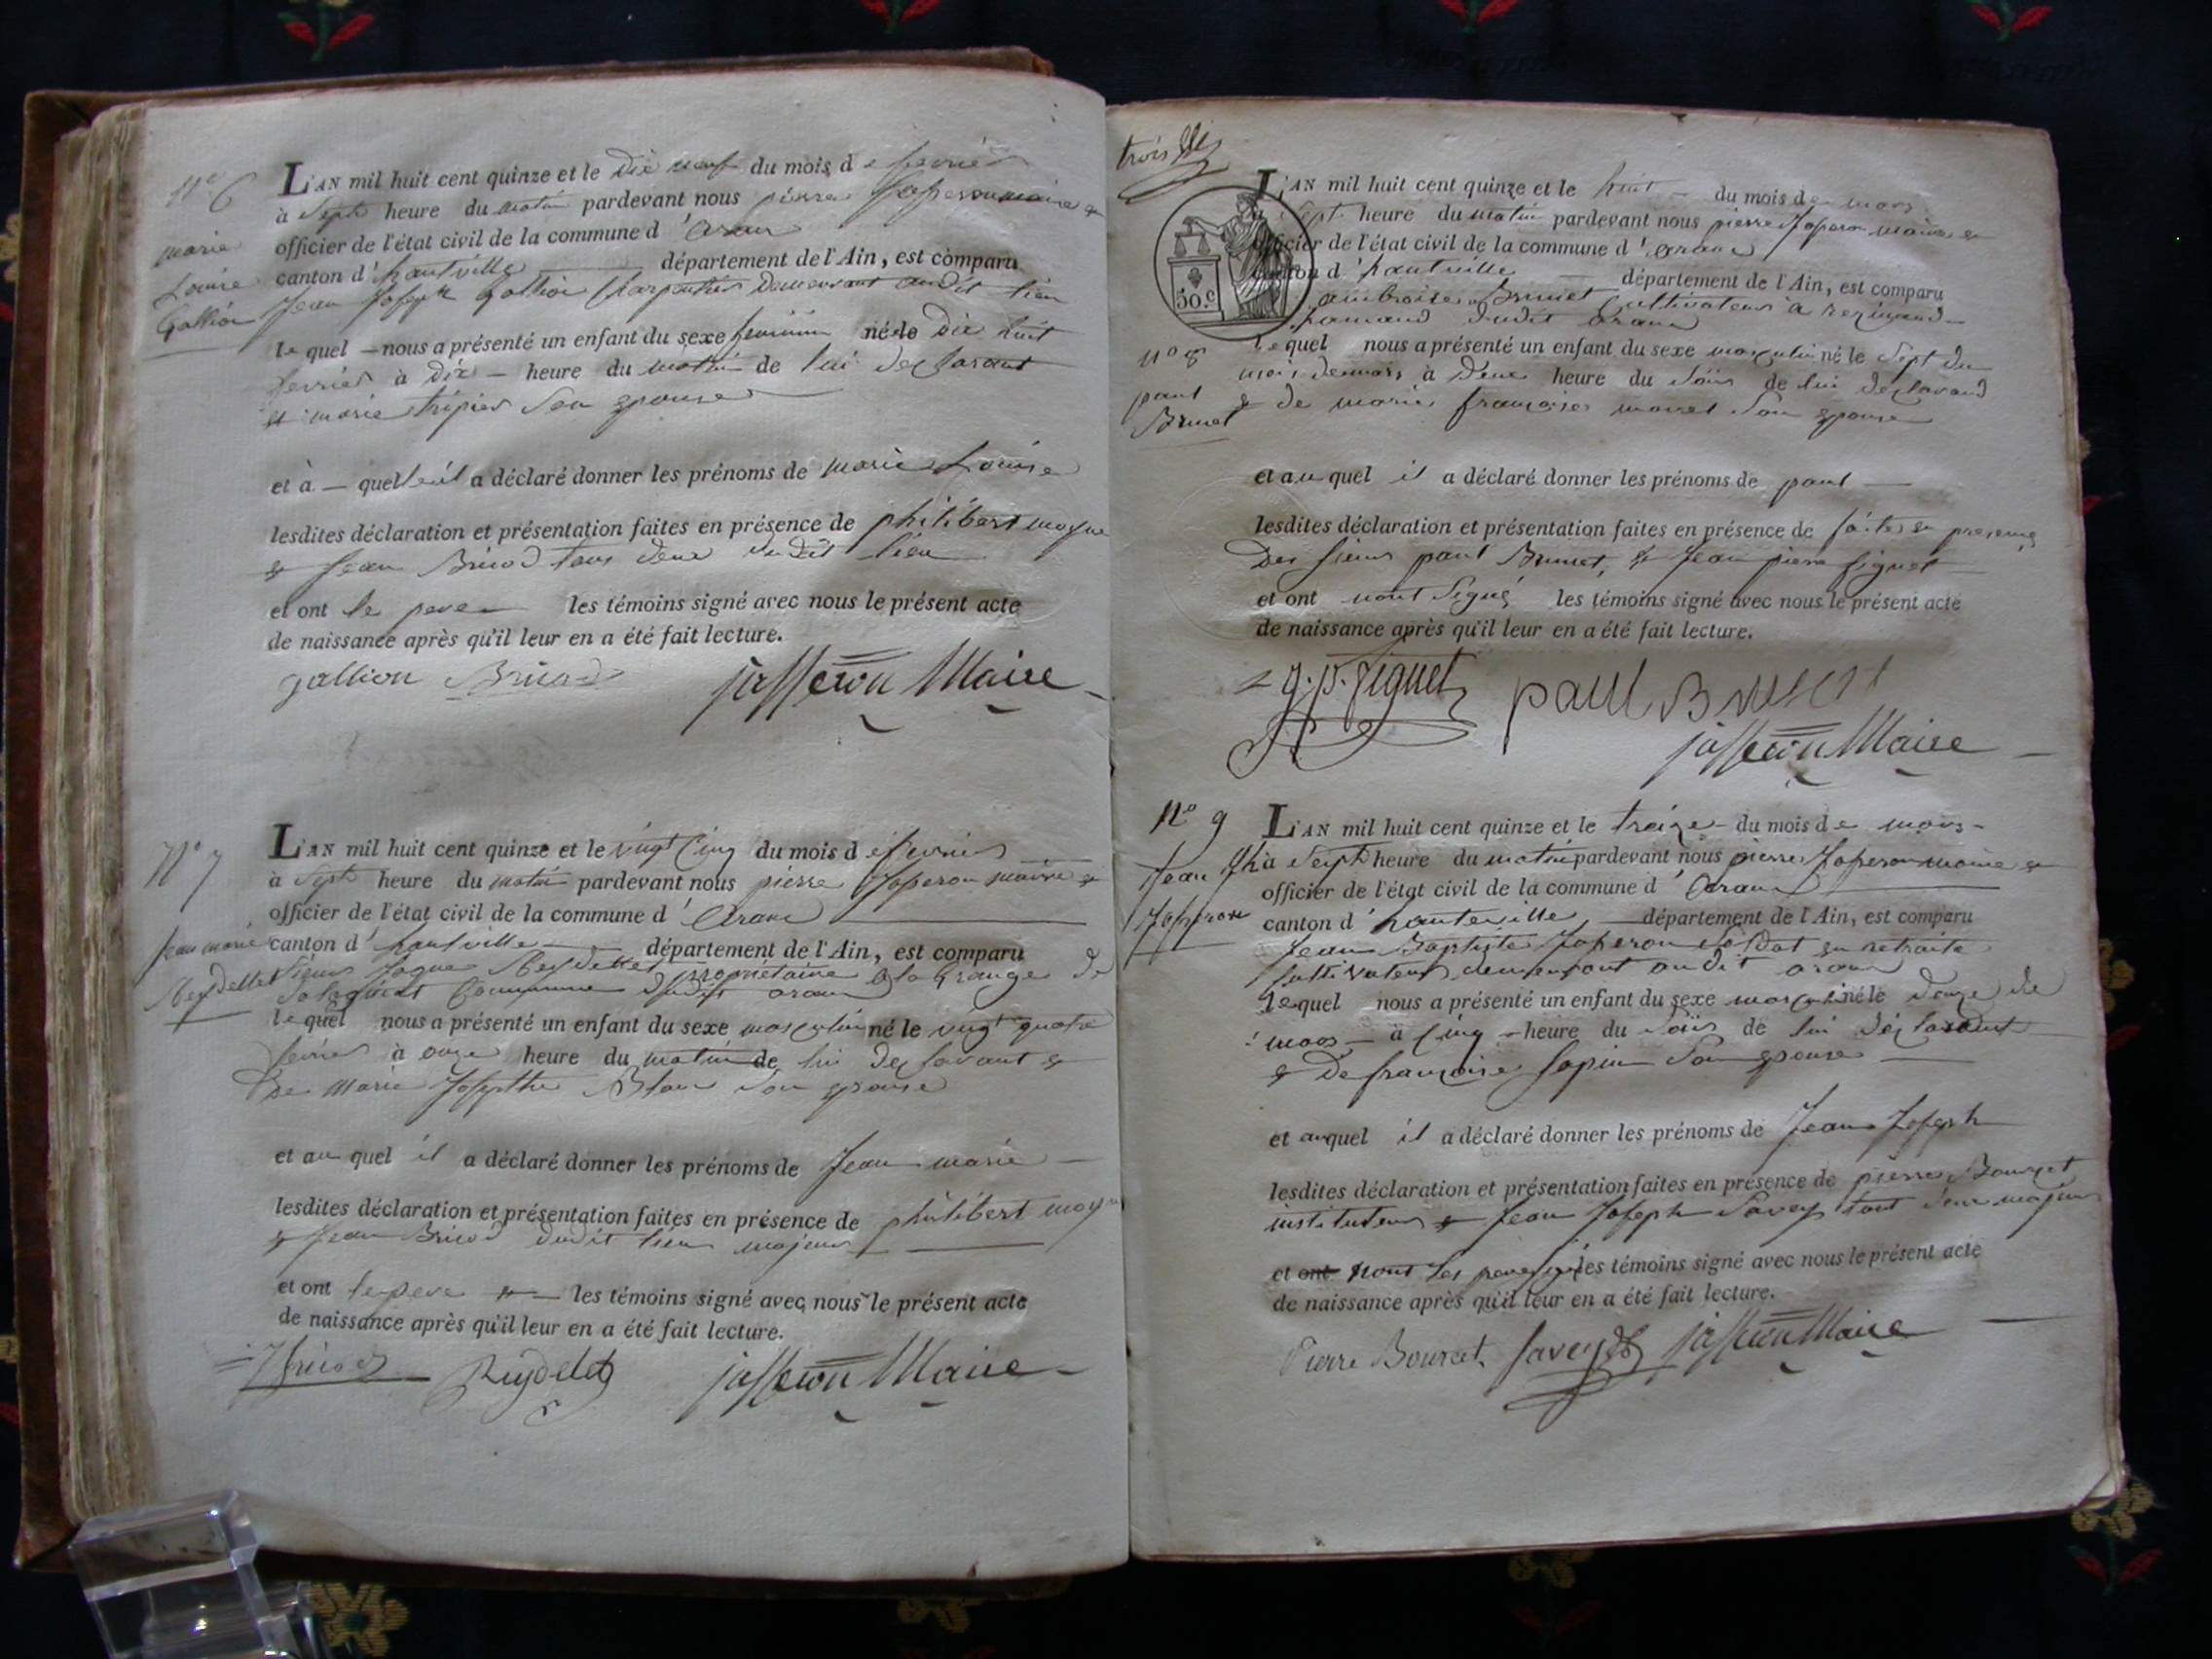 N° 6
marie
Louise
Gallion
L'AN mil huit cent quinze et le dix neuf du mois de fevrier
à Sept heure du matin pardevant nous pierre Josseron maire &
officier de l'état civil de la commune d'aranc
canton d'hautville département de l'Ain, est comparu
Jean Joseph Gallion Charpentier demeurant audit lieu
lequel nous a présenté un enfant du sexe feminin né le dix huit
fevrier à dix heure du matin de lui declarant
et marie tripier Son epouse
et à quelle il a déclaré donner les prénoms de marie Louise
lesdites déclaration et présentation faites en présence de philibert moyne
& Jean Bricod tous deux dudit lieu
et ont le pere les témoins signé avec nous le présent acte
de naissance après qu'il leur en a été fait lecture.
gallion Bricod josseron Maire
N° 7
Jean marie
Reydellet
L'AN mil huit cent quinze et le vingt Cinq du mois de fevrier
à Sept heure du matin pardevant nous pierre Josseron maire &
officier de l'état civil de la commune d'Aranc
canton d'hautville département de l'Ain, est comparu
Sieur Jaque Reydellet propriétaire a la Grange de
Commune dudit aranc
lequel nous a présenté un enfant du sexe masculin né le vingt quatre
fevrier à onze heure du matin de lui declarant &
De Marie Josepthe Son epouse
et au quel il a déclaré donner les prénoms de Jean marie
lesdites déclaration et présentation faites en présence de philibert moyne
& Jean Bricod dudit lieu majeur
et ont le pere & les témoins signé avec nous le présent acte
de naissance après qu'il leur en a été fait lecture.
J Bricod Reydelet josseron Maire
trois
50.c
N° 8
paul
Brunet
L'AN mil huit cent quinze et le huit du mois de mars
à Sept heure du matin pardevant nous pierre Josseron maire &
officier de l'état civil de la commune d'aranc
canton d'hautville département de l'Ain, est comparu
ambroise Brunet Cultivateur à
dudit aranc
lequel nous a présenté un enfant du sexe masculin né le Sept du
mois de mars à Deux heure du Soir de lui declarand
& de marie françoise Son epouse
et au quel il a déclaré donner les prénoms de paul
lesdites déclaration et présentation faites en présence de faites en presence
Des Sieurs paul Brunet, & Jean pierre figuet
et ont nont Signé les témoins signé avec nous le présent acte
de naissance après qu'il leur en a été fait lecture.
J. p. figuet paul Brunet
josseron Maire
N° 9
Jean Jh
Josseron
L'AN mil huit cent quinze et le treize du mois de mars
à Sept heure du matin pardevant nous pierre Josseron maire &
officier de l'état civil de la commune d'Aranc
canton d'hauteville département de l'Ain, est comparu
Jean Baptiste Josseron Soldat en retraite
Cultivateur demeurant audit aranc
lequel nous a présenté un enfant du sexe masculin né le douze de
mars à Cinq heure du Soir de lui déclarant
& De françoise Son epouse
et auquel il a déclaré donner les prénoms de Jean Joseph
lesdites déclaration et présentation faites en présence de pierre Bourcet
instituteur & Jean Joseph Savey tout deux majeur
et ont nont les témoins signé avec nous le présent acte
de naissance après qu'il leur en a été fait lecture.
Pierre Bourcet Savey josseron Maire